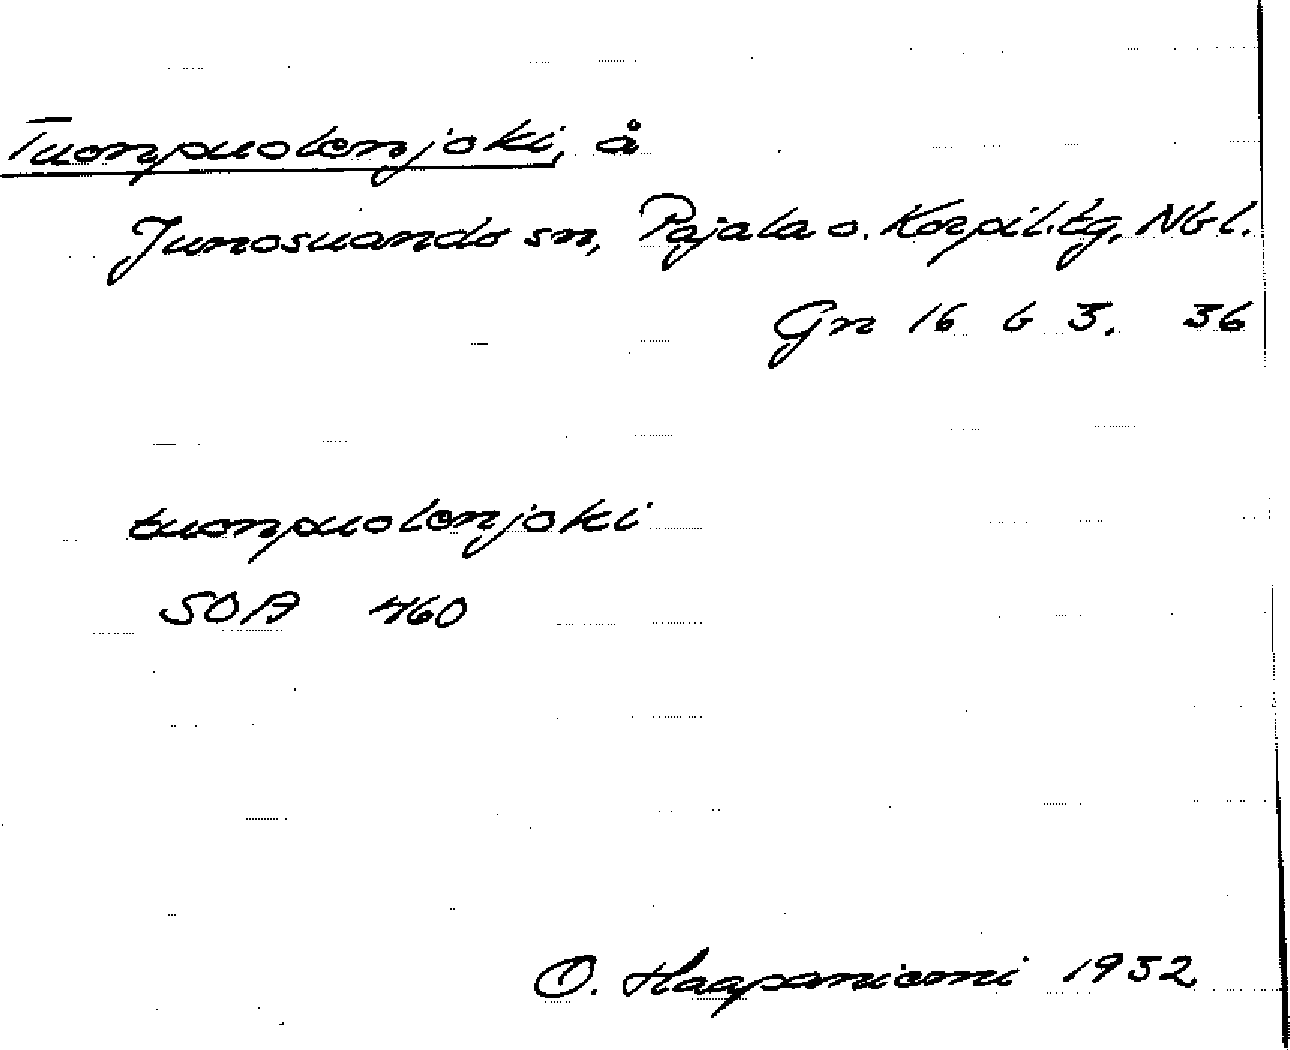 Tuonpuolenjoki, å
Junosuando sn, Pajala o. Korpil. tg, Nbl.
Gn 16 b 3. 36
tuonpuolenjoki
SOA 460
O. Haapaniemi 1932